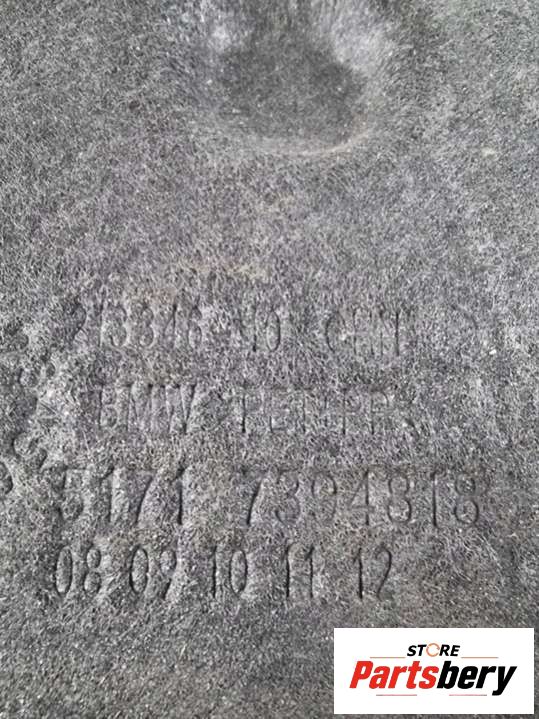 213346-10 CHN
BMW >PET+PP<
5171 7394818
08 09 10 11 12
STORE
Partsbery